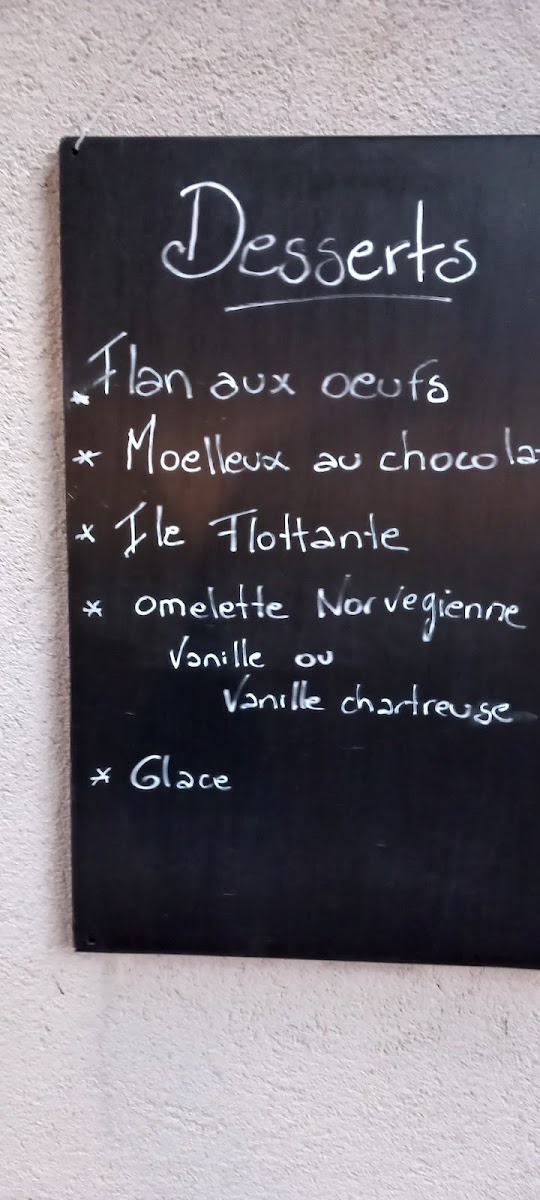 Desserts
* Flan aux oeufs
* Moelleux au chocola
* Ile Flottante
* omelette Norvegienne
Vanille ou
Vanille chartreuse
* Glace